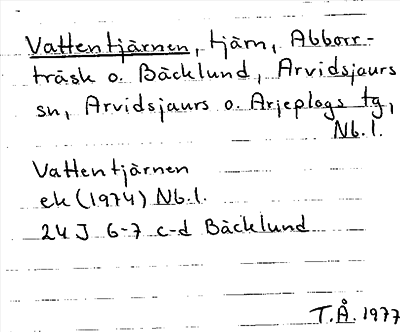 Vattentjärnen, tjärn, Abborr-
träsk o. Bäcklund, Arvidsjaurs
sn, Arvidsjaurs o. Arjeplogs tg,
Nb.l.
Vattentjärnen
ek (1974) Nb.l.
24J 6-7 c-d Bäcklund
T.Å. 1977